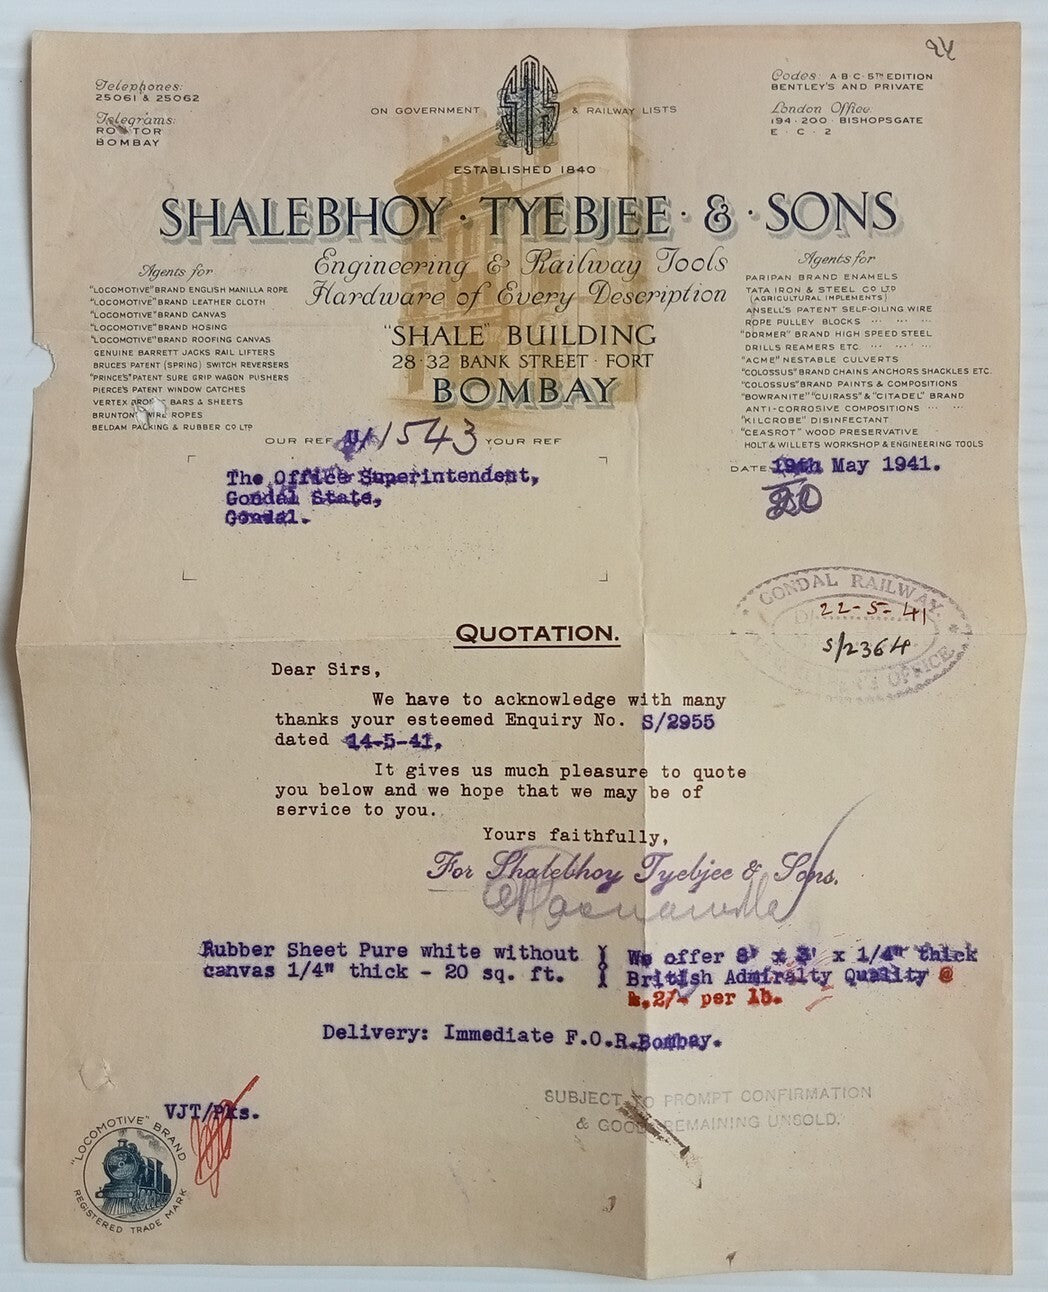 Telephones:
25061 & 25062
Telegrams:
ROSTOR
BOMBAY
ON GOVERNMENT & RAILWAY LISTS
STS
Codes: A·B·C·5TH EDITION
BENTLEY'S AND PRIVATE
London Office:
194·200·BISHOPSGATE
E·C·2
ESTABLISHED 1840
SHALEBHOY·TYEBJEE·&·SONS
Engineering & Railway Tools
Hardware of Every Description
"SHALE" BUILDING
28·32 BANK STREET·FORT
BOMBAY
Agents for
"LOCOMOTIVE" BRAND ENGLISH MANILLA ROPE
"LOCOMOTIVE" BRAND LEATHER CLOTH
"LOCOMOTIVE" BRAND CANVAS
"LOCOMOTIVE" BRAND HOSING
"LOCOMOTIVE" BRAND ROOFING CANVAS
GENUINE BARRETT JACKS RAIL LIFTERS
BRUCES PATENT (SPRING) SWITCH REVERSERS
"PRINCE'S" PATENT SURE GRIP WAGON PUSHERS
PIERCE'S PATENT WINDOW CATCHES
VERTEX BARS & SHEETS
BRUNTON WIRE ROPES
BELDAM PACKING & RUBBER CO LTD
Agents for
PARIPAN BRAND ENAMELS
TATA IRON & STEEL CO LTD
(AGRICULTURAL IMPLEMENTS)
ANSELL'S PATENT SELF-OILING WIRE
ROPE PULLEY BLOCKS ... ... ...
"DORMER" BRAND HIGH SPEED STEEL
DRILLS REAMERS ETC. ... ... ...
"ACME" NESTABLE CULVERTS
"COLOSSUS" BRAND CHAINS ANCHORS SHACKLES ETC.
"COLOSSUS" BRAND PAINTS & COMPOSITIONS
"BOWRANITE" "CUIRASS" & "CITADEL" BRAND
ANTI-CORROSIVE COMPOSITIONS ... ...
"KILCROBE" DISINFECTANT
"CEASROT" WOOD PRESERVATIVE
HOLT & WILLETS WORKSHOP & ENGINEERING TOOLS
OUR REF /1543 YOUR REF
DATE 19th May 1941.
20
The Office Superintendent,
Gondal State,
Gondal.
GONDAL RAILWAY
22-5-41
S/2364
OFFICE
QUOTATION.
Dear Sirs,
We have to acknowledge with many
thanks your esteemed Enquiry No. S/2955
dated 14-5-41.
It gives us much pleasure to quote
you below and we hope that we may be of
service to you.
Yours faithfully,
For Shalebhoy Tyebjee & Sons.
Rubber Sheet Pure white without
canvas 1/4" thick - 20 sq. ft.
We offer 6' x 3' x 1/4" thick
British Admiralty Quality @
Rs.2/- per lb.
Delivery: Immediate F.O.R.Bombay.
VJT/Pks.
SUBJECT TO PROMPT CONFIRMATION
& GOODS REMAINING UNSOLD.
"LOCOMOTIVE" BRAND
REGISTERED TRADE MARK